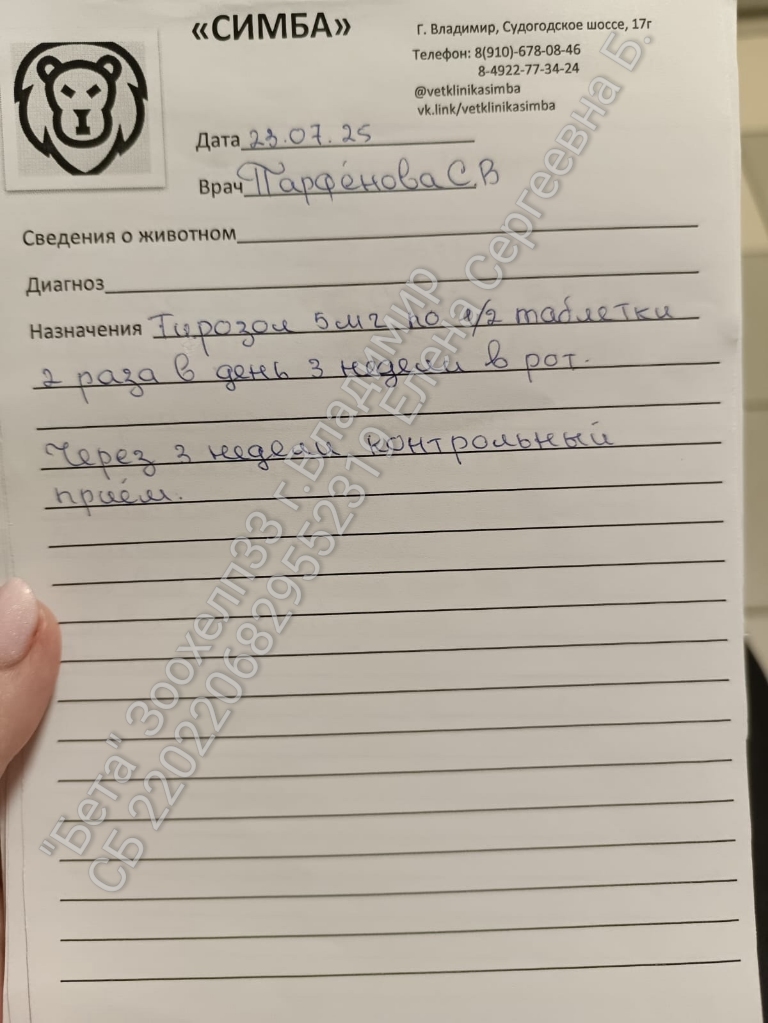 «СИМБА»
Г. Владимир, Судогодское шоссе, 17г
Телефон: 8(910)-678-08-46
8-4922-77-34-24
@vetklinikasimba
vk.link/vetklinikasimba
Дата 23.07.25
Врач Парфёнова С.В
Сведения о животном
Диагноз
Назначения Тирозол 5мг по 1/2 таблетки
2 раза в день 3 недели в рот.
Через 3 недели контрольный
приём.
"Бета" Зоохелп33 г.Владимир
СБ 2202206829552319 Елена Сергеевна Б.